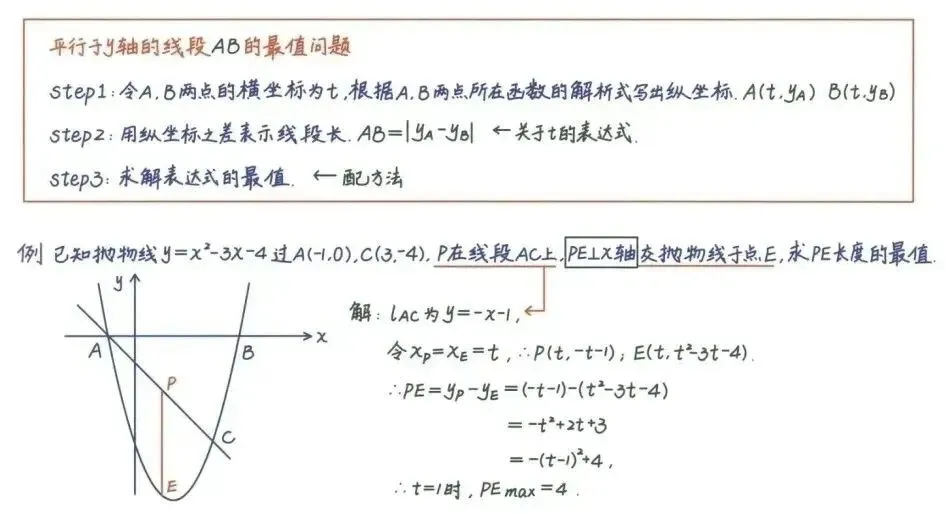 平行于y轴的线段AB的最值问题
step1:令A.B两点的横坐标为t,根据A.B两点所在函数的解析式写出纵坐标.A(t.yA) B(t.yB)
step2:用纵坐标之差表示线段长.AB=|yA-yB| ←关于t的表达式.
step3:求解表达式的最值. ←配方法
例 已知抛物线y=x²-3x-4过A(-1.0),C(3,-4),P在线段AC上,PE⊥x轴交抛物线于点E,求PE长度的最值.
y
x
A
B
P
C
E
解:lAC为y=-x-1,
令xP=xE=t,∴P(t,-t-1);E(t,t²-3t-4).
∴PE=yP-yE=(-t-1)-(t²-3t-4)
=-t²+2t+3
=-(t-1)²+4,
∴t=1时,PEmax=4.